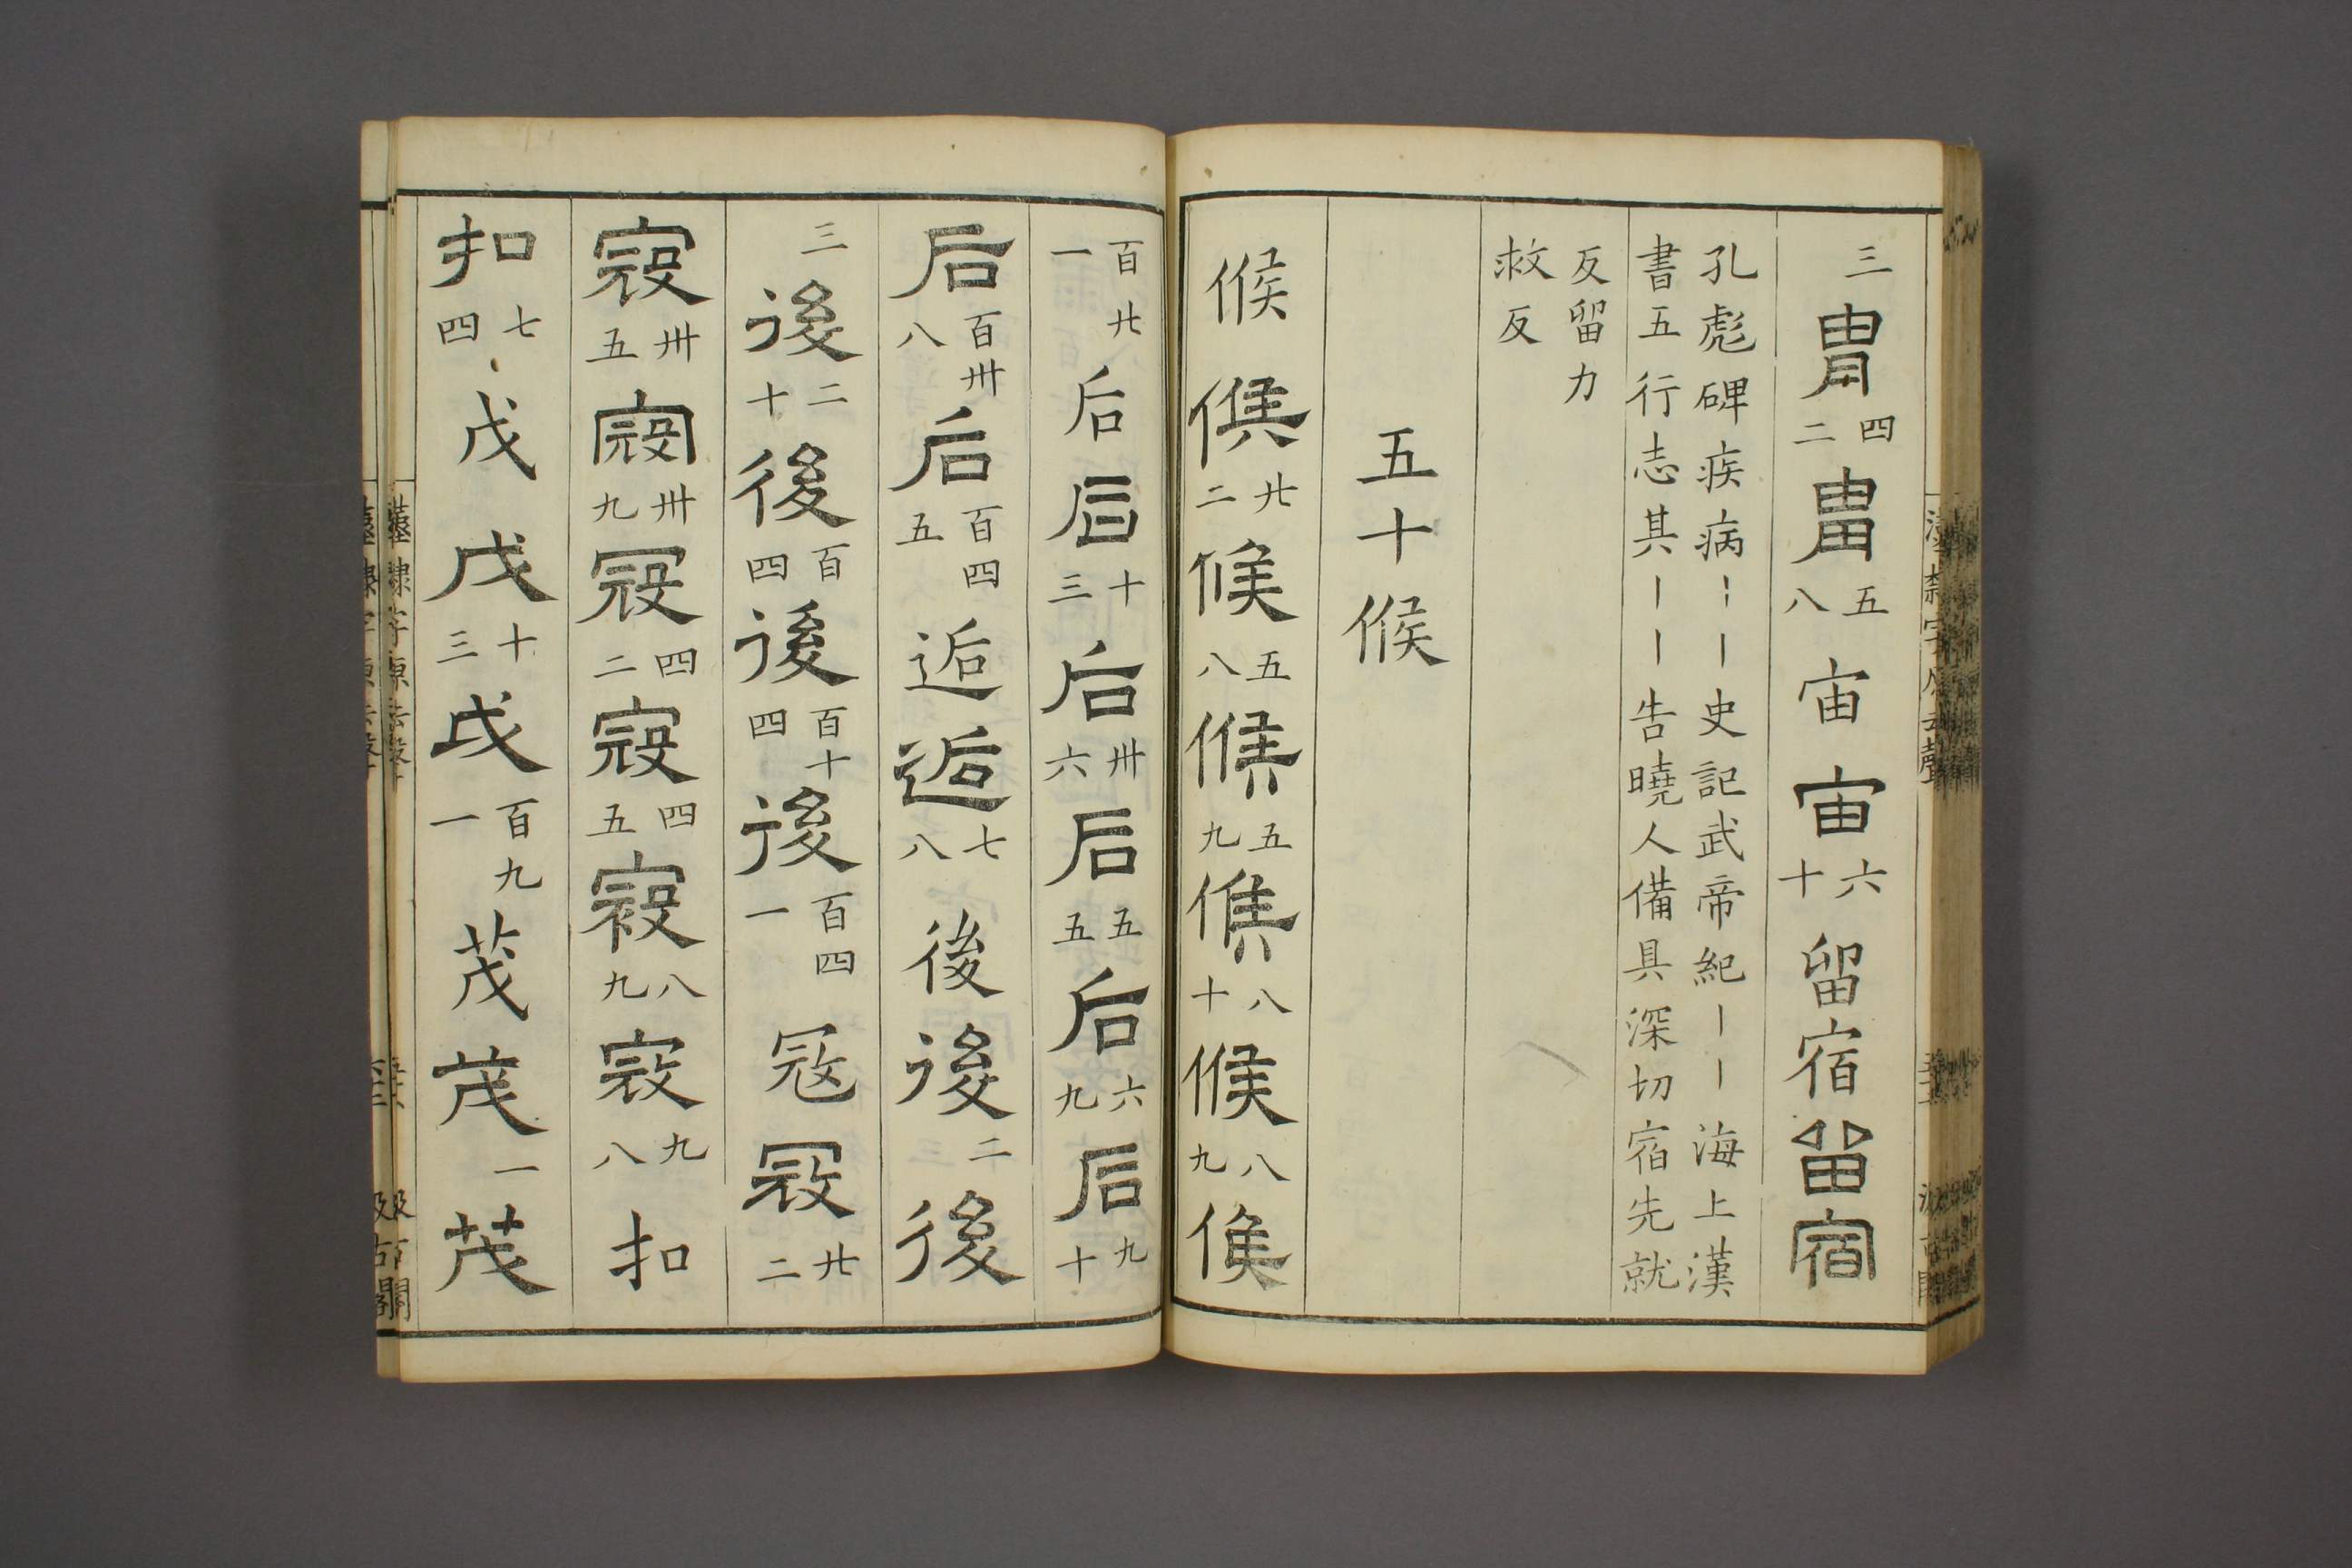 三冑四二冑五八宙宙六十留宿留宿
孔彪碑疾病---史記武帝紀---海上漢
書五行志其---告曉人備具深切宿先就
反留力
救反
五十候
候候廿二候五八候五九候八十候八九候
百廿一后后十三后卅六后五五后六九后九十
后百卅八后百四四五逅逅七八後後二三後
三後二十後百四後百十四後百四一冦寇廿二
寇卅五寇卅九寇四二寇四五寇八九寇九八扣
扣七四戊戊十三戊百九一茂茂一茂
漢隸字原去聲
汲古閣